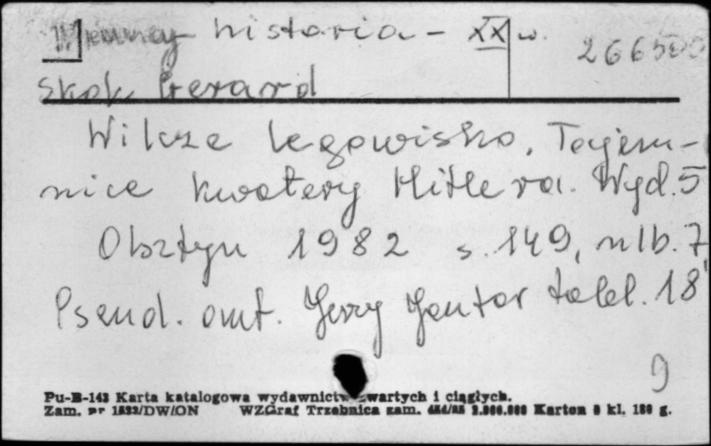 Niemcy historia - XX w.
266500
Skok. Gerard
Wilcze legowisko. Tajem-
nice kwatery Hitlera. Wyd. 5
Olsztyn 1982 s. 149, nlb. 7,
Pseud. aut. Jerzy Jantar tabl. 18
9
Pu-B-143 Karta katalogowa wydawnictw zwartych i ciągłych.
Zam. nr 1532/DW/ON WZGraf Trzebnica zam. Karton kl. 180 g.